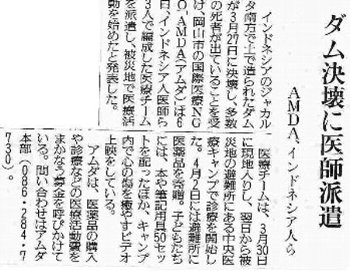 ダム決壊に医師派遣
AMDA、インドネシア人ら
インドネシアのジャカル
タ南方で土で造られたダム
が3月27日に決壊し、多数
の死者が出ていることを受
け、岡山市の国際医療NG
O「AMDA(アムダ)」は6
日、インドネシア人医師ら
3人で編成した医療チーム
を派遣し、被災地で医療活
動を始めたと発表した。
医療チームは、3月30日
に現地入りし、翌日から被
災地の避難所にある中央医
療キャンプで診療を開始し
た。4月2日には避難所に
医薬品を寄贈。子どもたち
には、本や筆記用具50セッ
トを配ったほか、キャンプ
内で心の傷を癒やすビデオ
上映をしている。
アムダは、医薬品の購入
や診療などの医療活動費を
まかなう募金を呼びかけて
いる。問い合わせはアムダ
本部(086・284・7
730)。